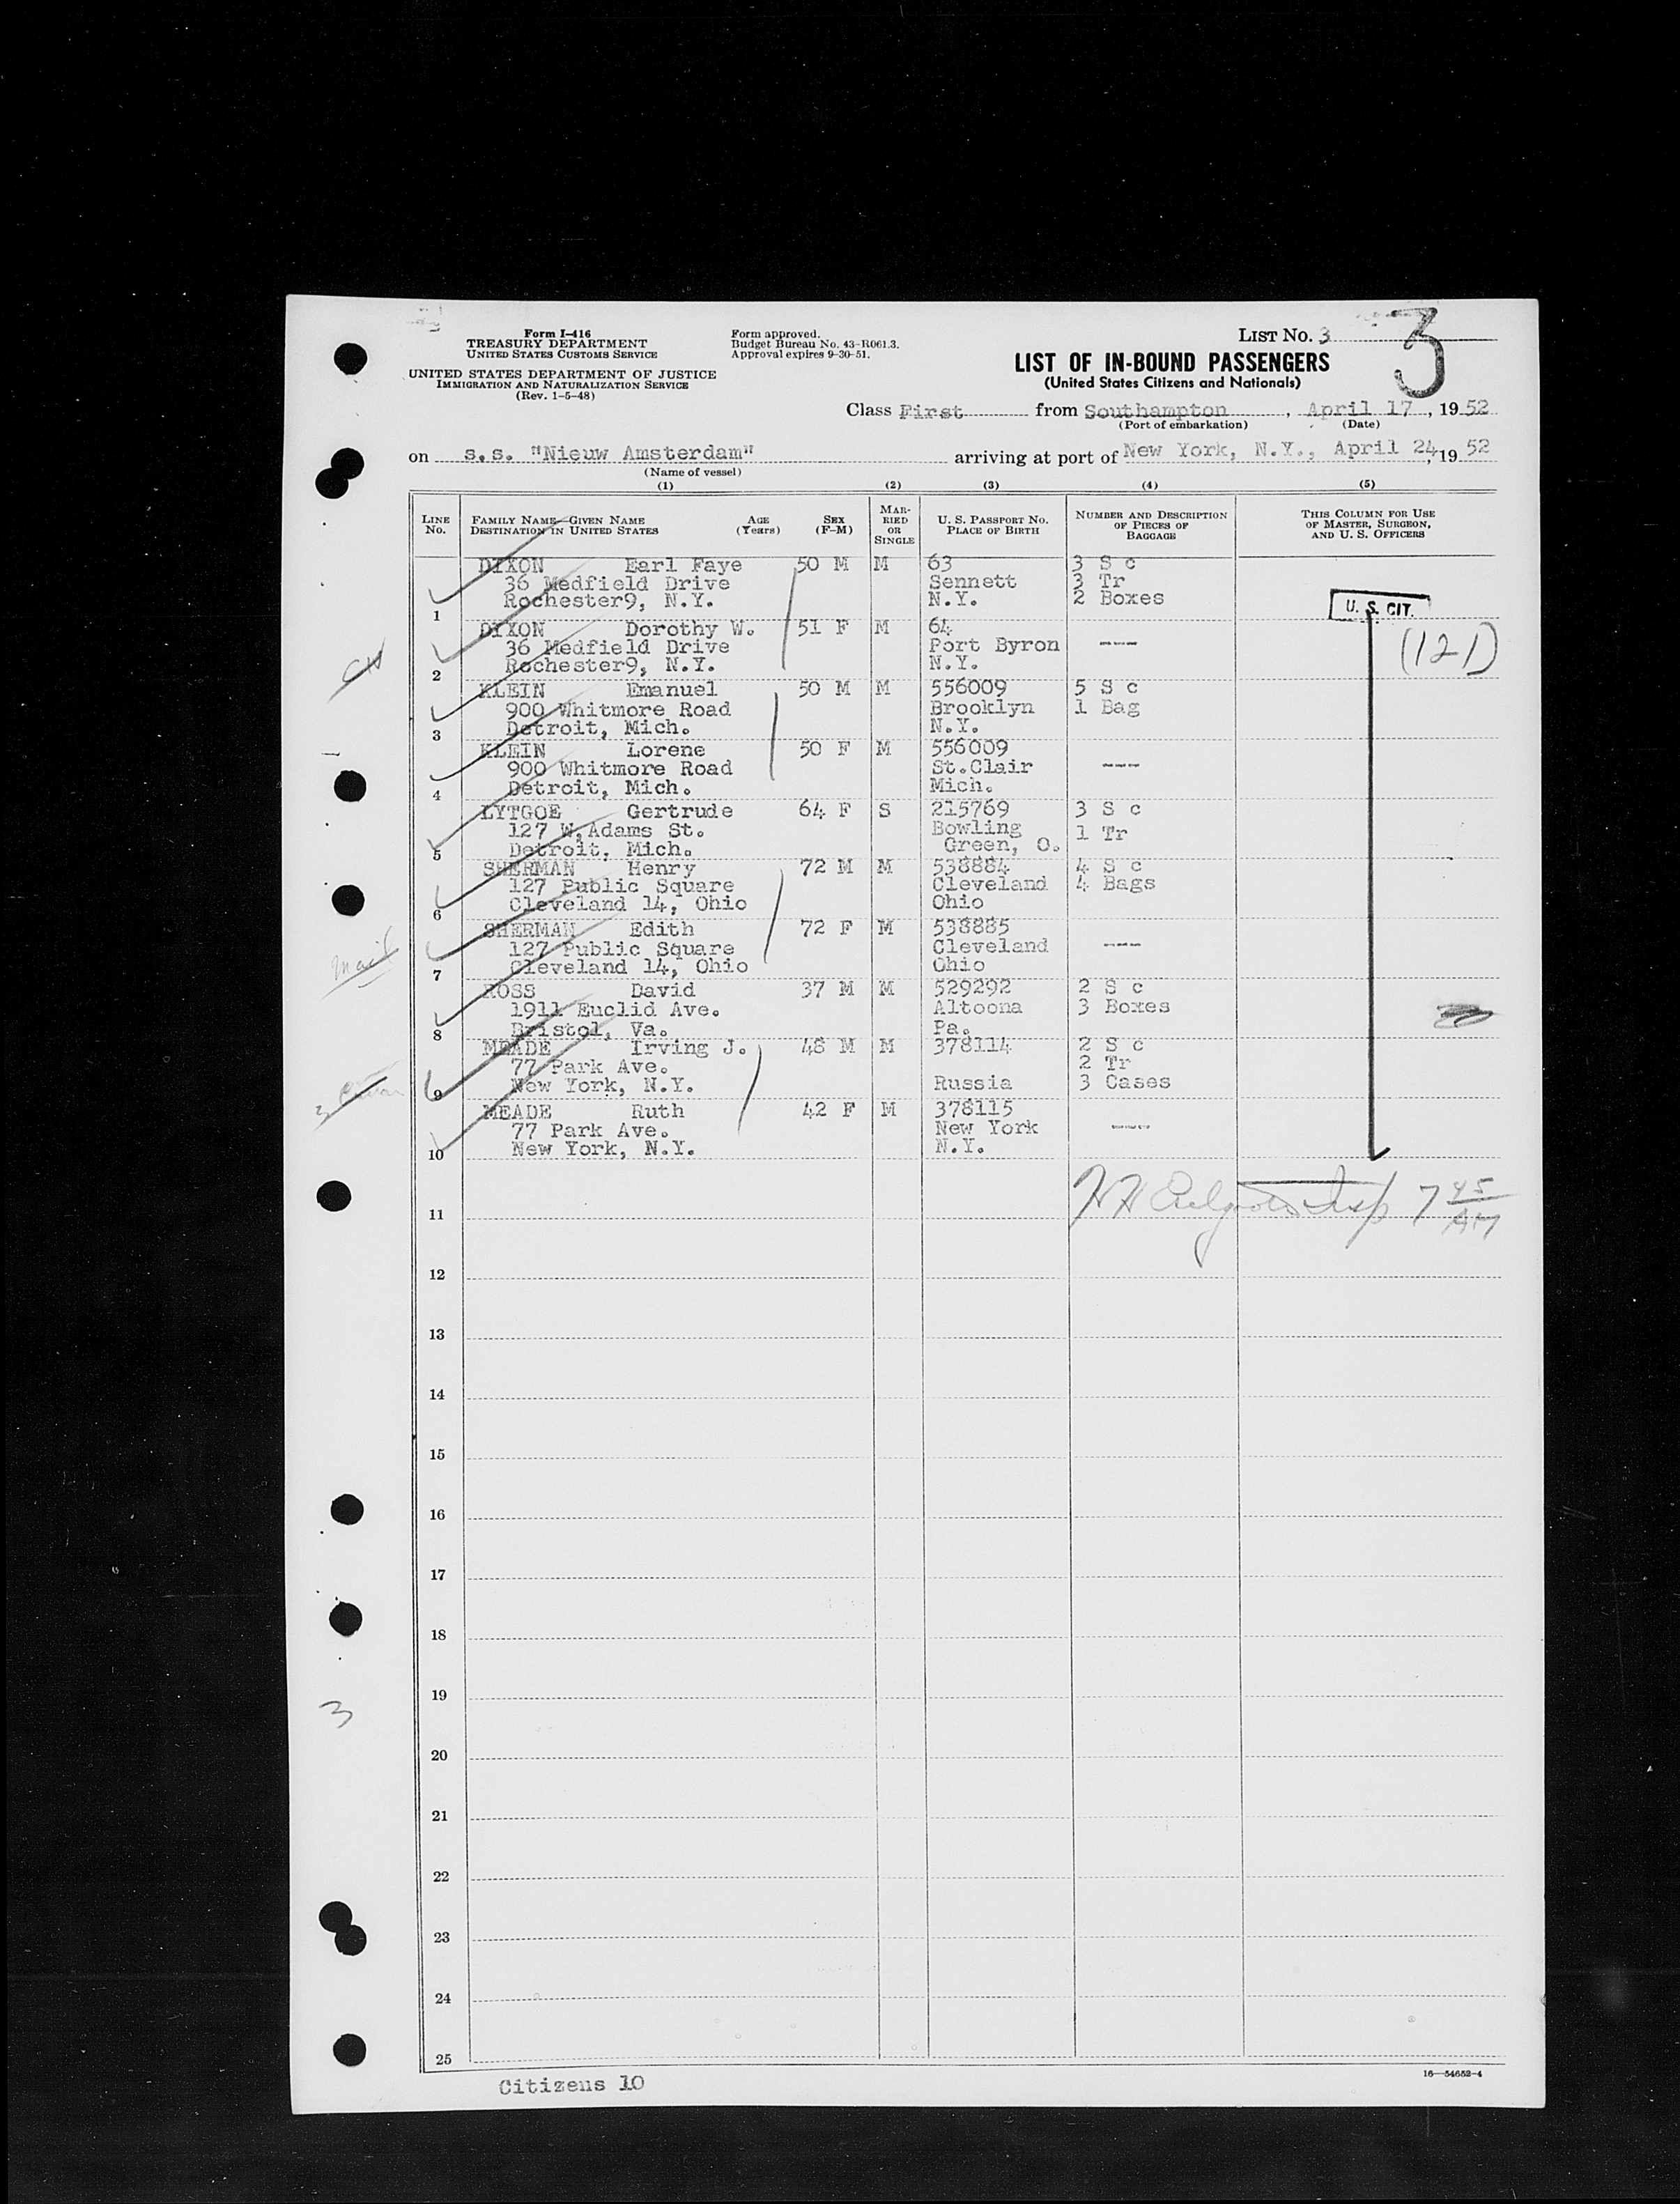 Form I-416
TREASURY DEPARTMENT
UNITED STATES CUSTOMS SERVICE
UNITED STATES DEPARTMENT OF JUSTICE
IMMIGRATION AND NATURALIZATION SERVICE
(Rev. 1-5-48)
Form approved.
Budget Bureau No. 43-R061.3.
Approval expires 9-30-51.
LIST NO. 3
3
LIST OF IN-BOUND PASSENGERS
(United States Citizens and Nationals)
Class First from Southampton, April 17, 1952
(Port of embarkation) (Date)
on s.s. "Nieuw Amsterdam" arriving at port of New York, N.Y., April 24, 1952
(Name of vessel)
(1) (2) (3) (4) (5)
LINE NO.
FAMILY NAME—GIVEN NAME
DESTINATION IN UNITED STATES
AGE (Years)
SEX (F-M)
MARRIED OR SINGLE
U. S. PASSPORT NO.
PLACE OF BIRTH
NUMBER AND DESCRIPTION OF PIECES OF BAGGAGE
THIS COLUMN FOR USE OF MASTER, SURGEON, AND U. S. OFFICERS
DIXON Earl Faye 50 M M 63 3 S c
36 Medfield Drive Sennett 3 Tr
1 Rochester9, N.Y. N.Y. 2 Boxes
U. S. CIT.
DIXON Dorothy W. 51 F M 64
36 Medfield Drive Port Byron ---
2 Rochester9, N.Y. N.Y.
(121)
KLEIN Emanuel 50 M M 556009 5 S c
900 Whitmore Road Brooklyn 1 Bag
3 Detroit, Mich. N.Y.
KLEIN Lorene 50 F M 556009
900 Whitmore Road St.Clair ---
4 Detroit, Mich. Mich.
LYTGOE Gertrude 64 F S 215769 3 S c
127 W.Adams St. Bowling 1 Tr
5 Detroit, Mich. Green, O.
SHERMAN Henry 72 M M 538884 4 S c
127 Public Square Cleveland 4 Bags
6 Cleveland 14, Ohio Ohio
SHERMAN Edith 72 F M 538885
127 Public Square Cleveland ---
7 Cleveland 14, Ohio Ohio
ROSS David 37 M M 529292 2 S c
1911 Euclid Ave. Altoona 3 Boxes
8 Bristol, Va. Pa.
MEADE Irving J. 48 M M 378114 2 S c
77 Park Ave. 2 Tr
9 New York, N.Y. Russia 3 Cases
MEADE Ruth 42 F M 378115
77 Park Ave. New York ---
10 New York, N.Y. N.Y.
Insp 7 45 AM
11
12
13
14
15
16
17
18
19
3
20
21
22
23
24
25
Citizens 10
16—54652-4